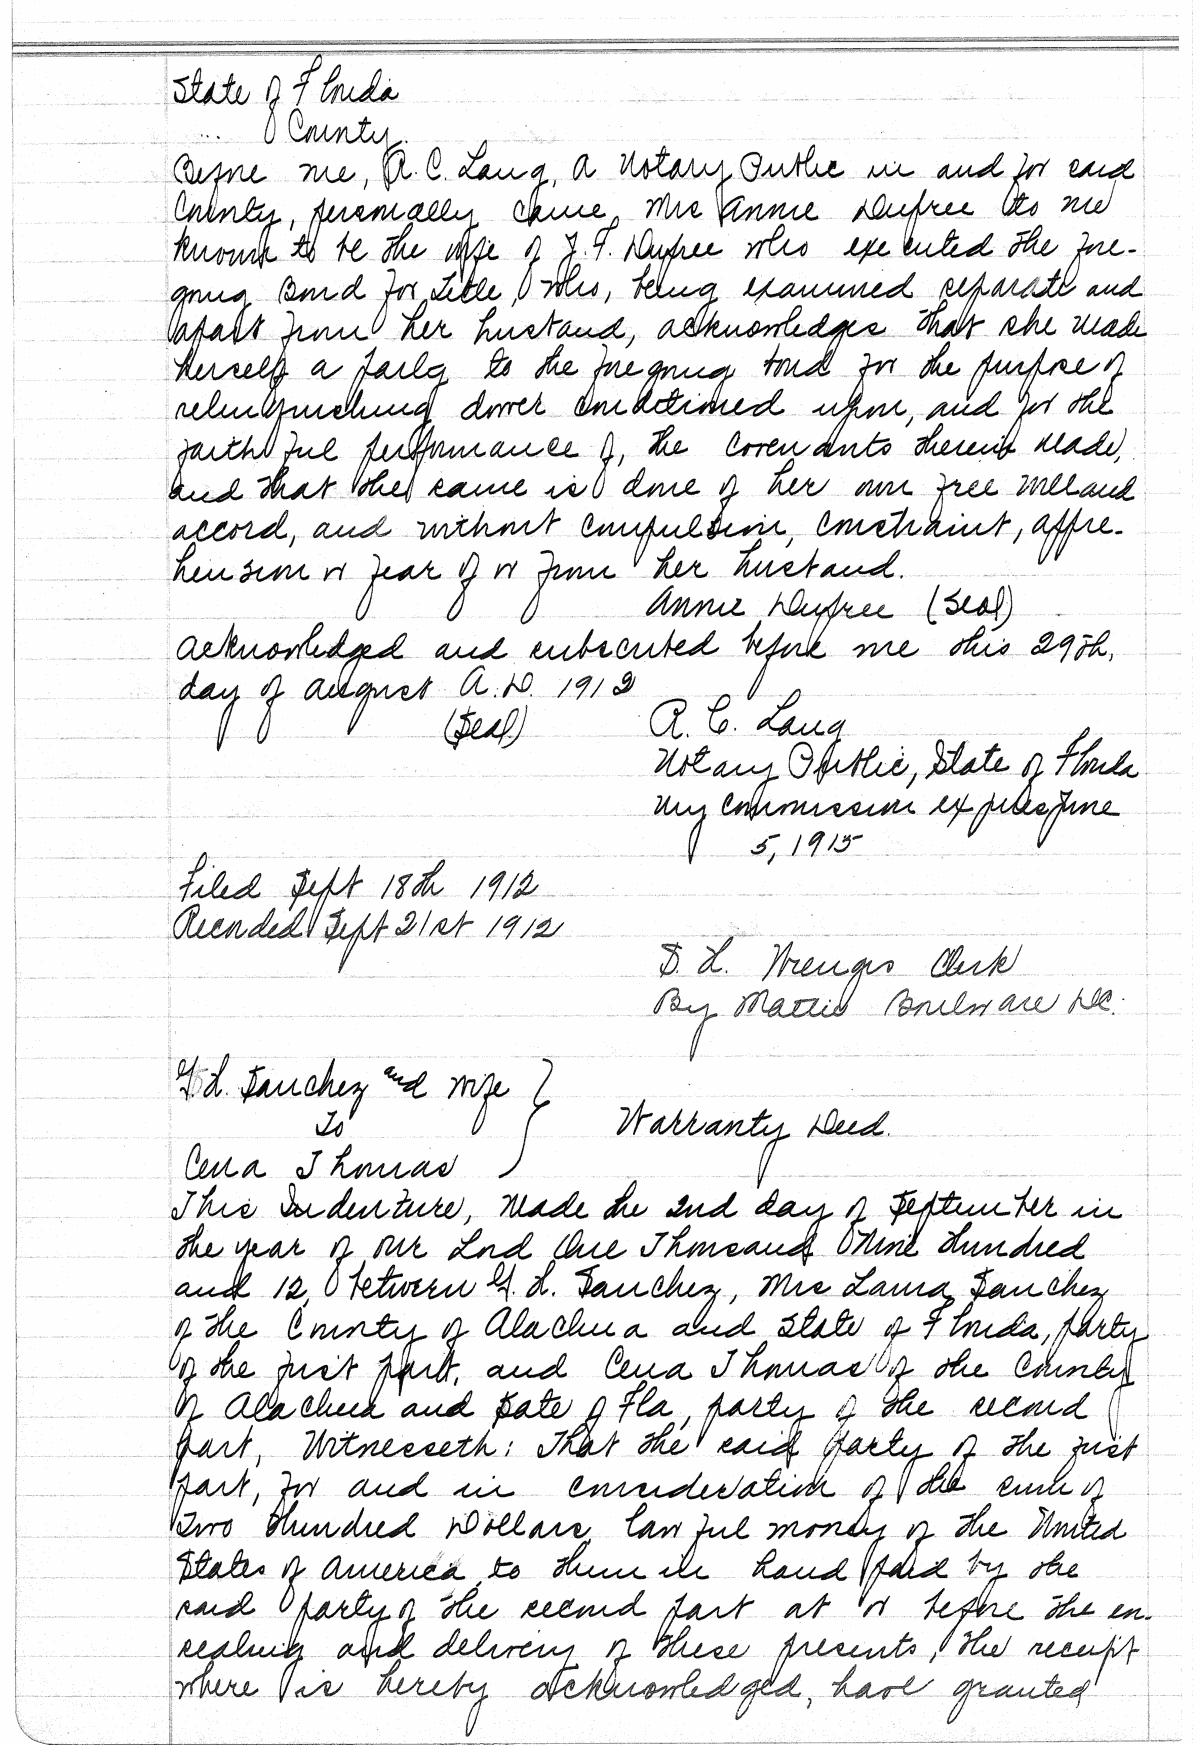 State of Florida
... County.
Before me, R. C. Lang, a Notary Public in and for said
County, personally came, Mrs Annie Dupree to me
known to be the wife of J. F. Dupree who executed the fore-
going Bond for Title, who, being examined separate and
apart from her husband, acknowledges that she made
herself a party to the foregoing bond for the purpose of
relinquishing dower conditioned upon, and for the
faithful performance of, the covenants therein made,
and that the same is done of her own free will and
accord, and without compulsion, constraint, appre-
hension or fear of or from her husband.
Annie Dupree (Seal)
Acknowledged and subscribed before me this 29th,
day of August A.D. 1912
(Seal) R. C. Lang
Notary Public, State of Florida
My Commission expires June
5, 1915
Filed Sept 18th 1912
Recorded Sept 21st 1912
S. H. Wienges Clerk
By Mattie Boulware D.C.
G. L. Sanchez and Wife
To Warranty Deed.
Cena Thomas
This Indenture, Made the 2nd day of September in
the year of our Lord One Thousand Nine Hundred
and 12, between G. L. Sanchez, Mrs Laura Sanchez
of the County of Alachua and State of Florida, party
of the first part, and Cena Thomas of the County
of Alachua and State of Fla, party of the second
part, Witnesseth: That the said party of the first
part, for and in consideration of the sum of
Two Hundred Dollars, lawful money of the United
States of America, to them in hand paid by the
said party of the second part at or before the en-
sealing and delivery of these presents, the receipt
where is hereby acknowledged, have granted